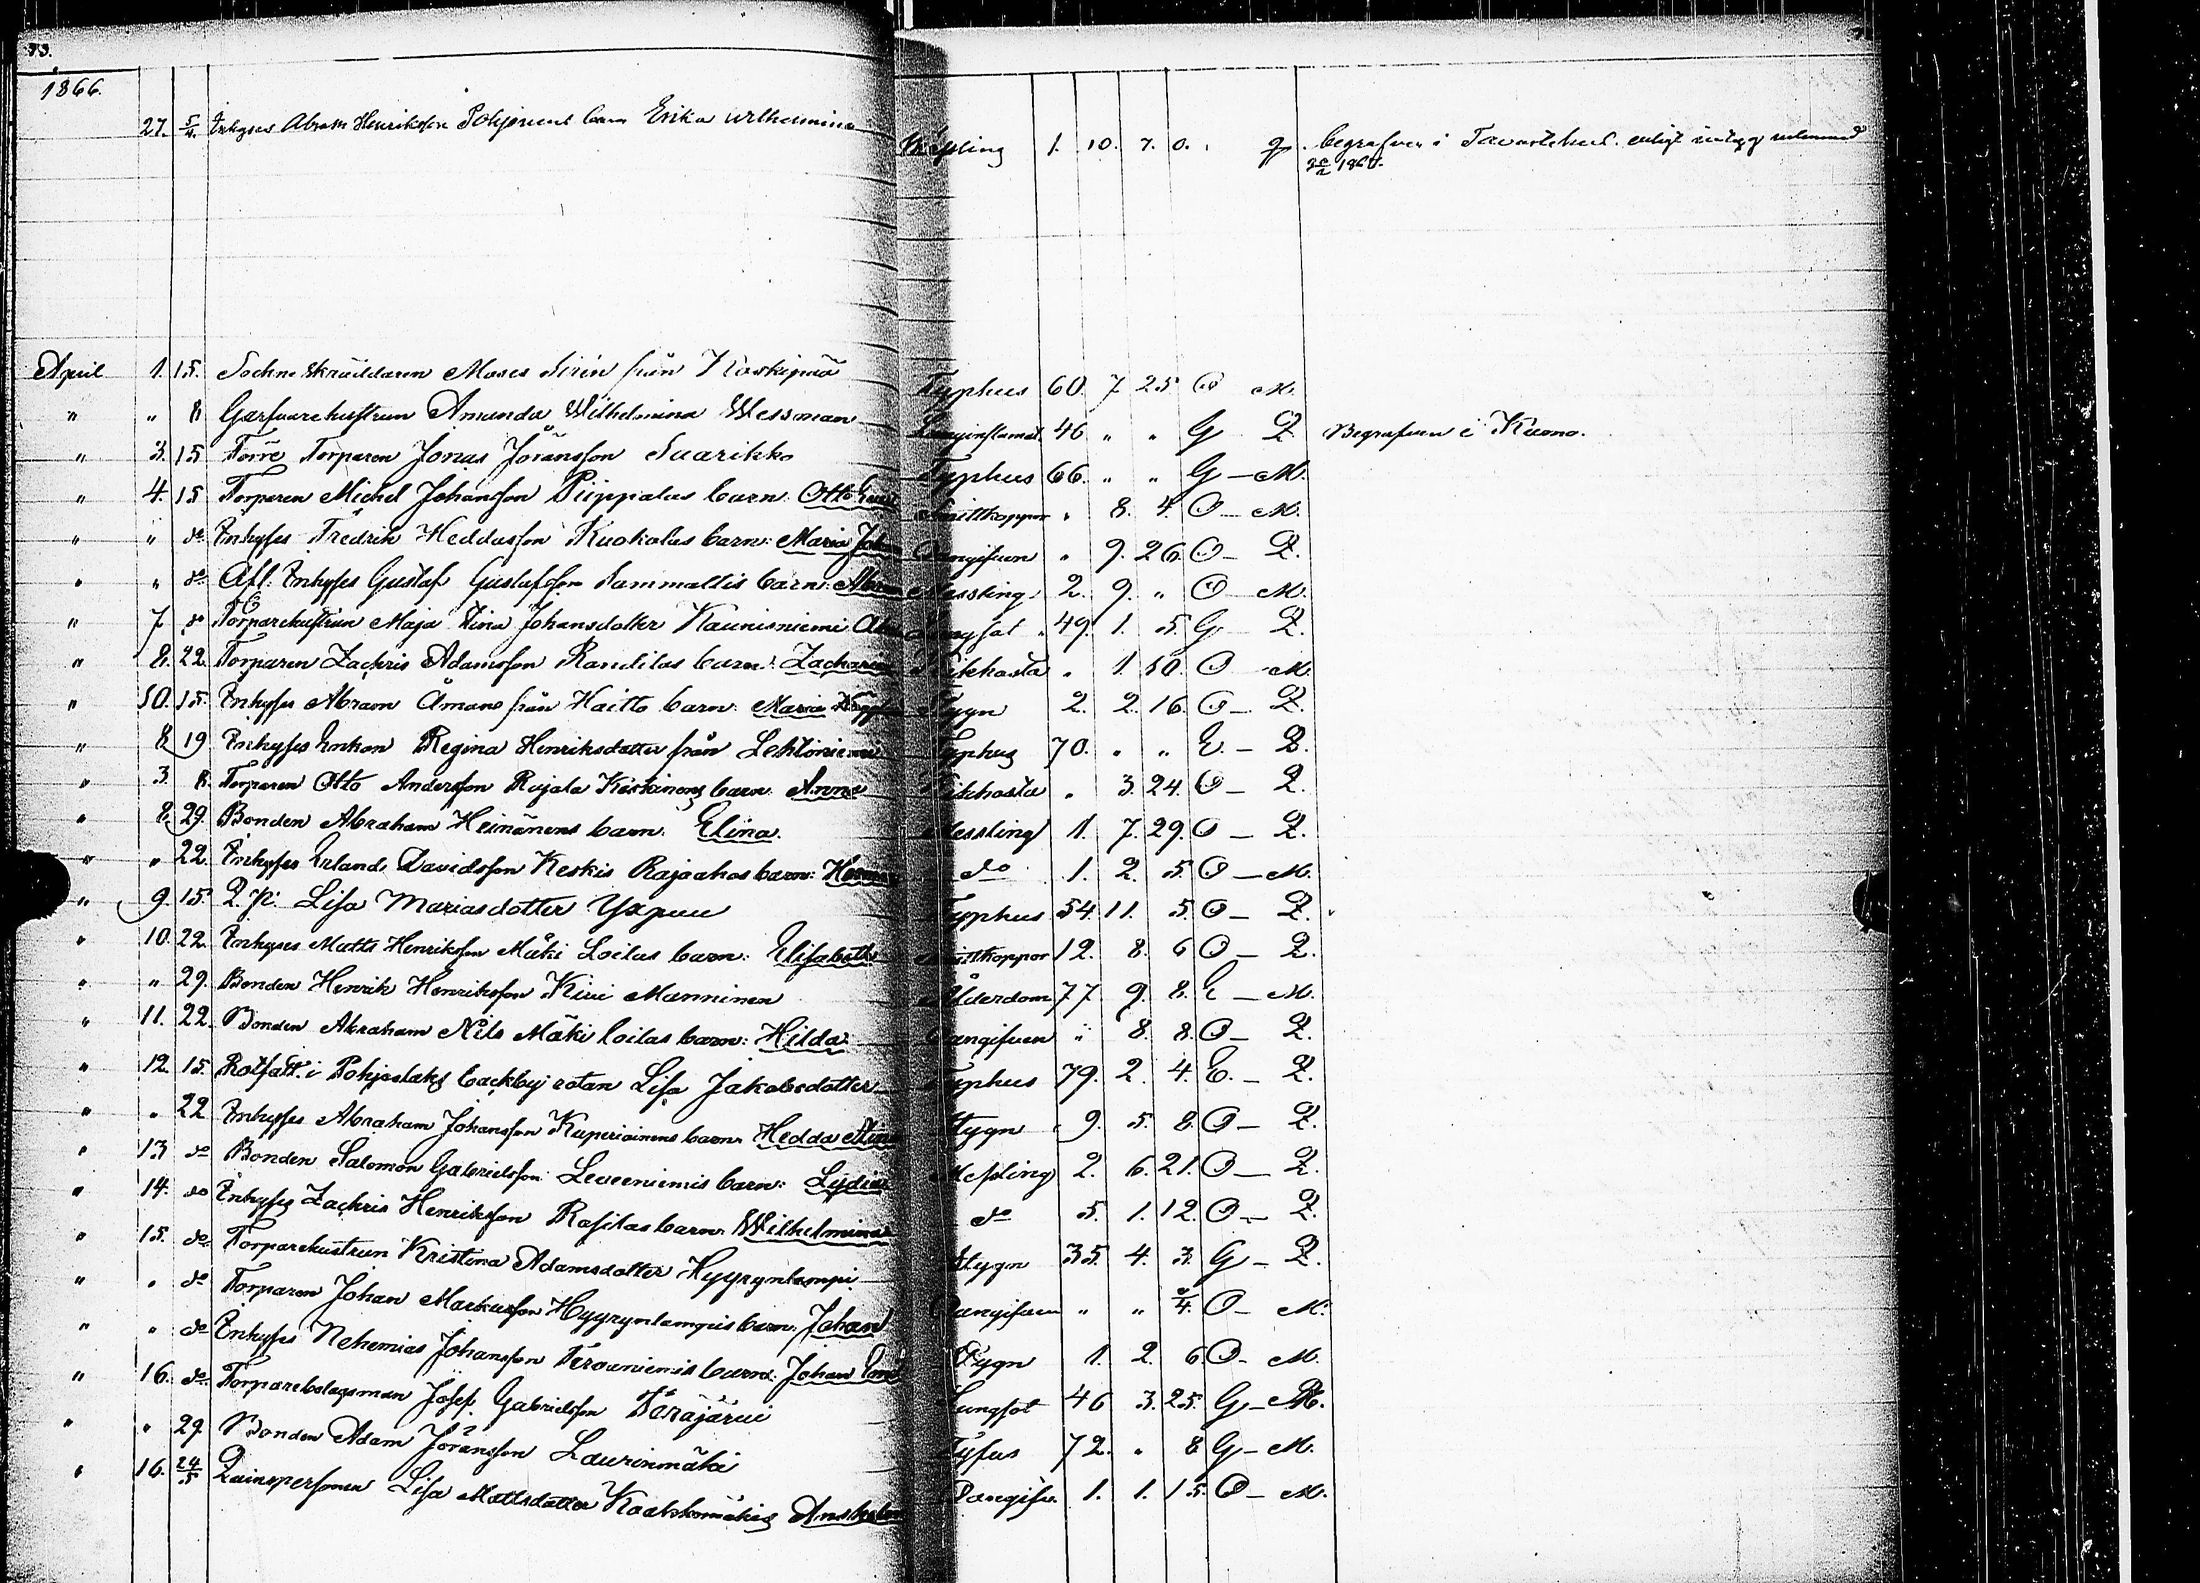 93.
1866.
27. 5/4. Inhyses Abram Henriksson Pohjois barn Erika Wilhelmina Messling 1. 10. 7. O. Q. begrafven i Tavastehus enligt intyg
20/2 1868.
April 1. 15. Sockne skräddaren Moses Sirén från Koskipää Typhus 60. 7 25 O M.
" " 8 Garfvarehustrun Amanda Wilhelmina Wessman Lunginflamat. 46 " " G Q Begrafven i Kumo.
" 3. 15 Förre Torparen Jonas Jöransson Suarikko Typhus 66. " " G - M.
" 4. 15 Torparen Michel Johansson Piippalas barn: Otto Smittkoppor " 8. 4. O - M.
" " do Inhyses Fredrik Heddasson Kuokolas barn: Maria Joh Bangifven " 9. 26. O - Q.
" " do Afl. Inhyses Gustaf Gustafsson Sammaltis barn: Messling 2. 9. " O M.
" 7. do Torparehustrun Maja Stina Johansdotter Kaunisniemi Lungsot 49. 1. 5. G Q.
" 8. 22. Torparen Zachris Adamsson Randilas barn: Zacharias Kikhosta " 1 10. O M.
" 10. 15. Inhyses Abram Åmans från Haitto barn: Maria Stygn 2. 2. 16. O - Q.
" 8. 19 Inhyses Enkan Regina Henriksdotter från Lehtoniemi Typhus 70. " " E. - Q.
" 3. 8. Torparen Otto Andersson Rajala Keskinens barn: Anna Kikhosta " 3. 24. O - Q.
" 8. 29. Bonden Abraham Heinänens barn: Elina. Messling 1. 7. 29. O - Q.
" " 22. Inhyses Erland Davidsson Keskis Rajaahos barn: Herman do 1. 2. 5. O - M.
" 9. 15. Q. P. Lisa Mariasdotter Yxpuu Typhus 54. 11. 5. O - Q.
" 10. 22. Inhyses Matts Henriksson Mäki Loilas barn: Elisabeth Smittkoppor 12. 8. 6 O - Q.
" " 29. Bonden Henrik Henriksson Kivi Manninen Ålderdom 77 9. 8. E - M.
" 11. 22. Bonden Abraham Nils Mäki Loilas barn: Hilda Bangifven " 8. 8. O - Q.
" 12. 15. Rotfatt. i Pohjaslaks backby rotan Lisa Jakobsdotter Typhus 79. 2. 4. E. - Q.
" " 22 Inhyses Abraham Johansson Kuperiainens barn: Hedda Stina Stygn 9. 5. 8. O - Q.
" 13 do Bonden Salomon Gabrielsson Leveeniemis barn: Lydia Messling 2. 6. 21. O - Q.
" 14. do Inhyses Zachris Henriksson Rasilas barn: Wilhelmina do 5. 1. 12. O - Q.
" 15. do Torparehustrun Kristina Adamsdotter Hyyrynlampi Stygn 35. 4. 3. G - Q.
" " do Torparen Johan Markusson Hyyrynlampis barn: Johan Bangifven " " /4. O - M.
" " do Inhyses Nehemias Johansson Tervaniemis barn: Johan Emil Stygn 1. 2. 6 O - M.
" 16. do Torparebolagsman Josef Gabrielsson Teräjärvi Lungsot 46 3. 25. G - M.
" " 29. Bonden Adam Jöransson Laurinmäki Tyfus 72. " 8 G - M.
" 16. 24/5 Qvinspersonen Lisa Mattsdotter Kaakkomäkis Anshelm Bangifv. 1. 1. 15. O - M.